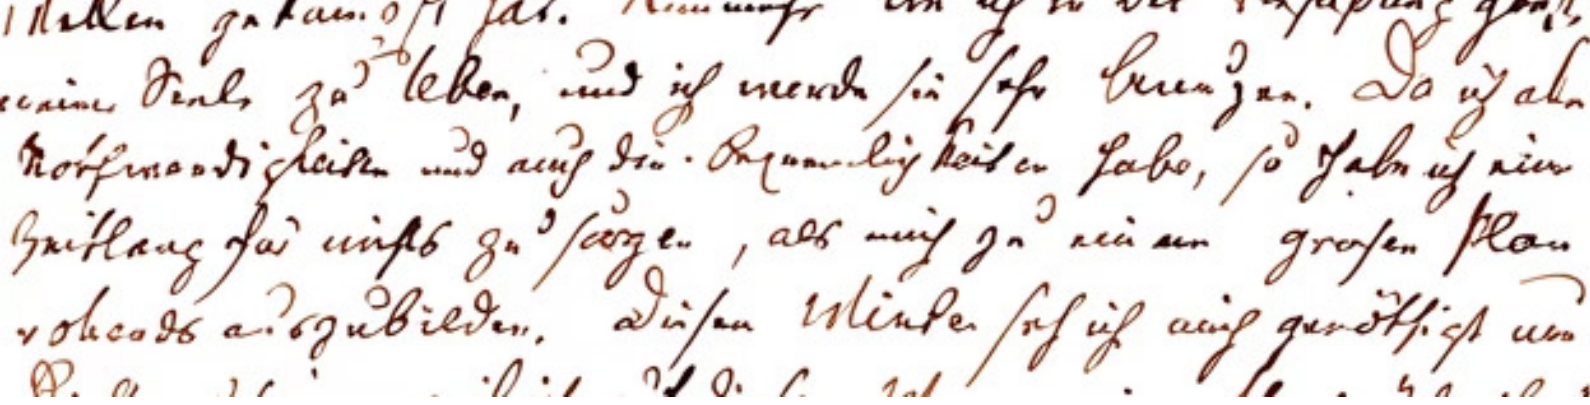 gekämpft hat. Nunmehr bin ich in der Verfaßung ganz
meiner Seele zu leben, und ich werde sie sehr benuzen. Da ich alle
Nothwendigkeiten und auch die Bequemlichkeiten habe, so habe ich eine
Zeitlang für nichts zu sorgen, als mich zu einem grosen Plan
vollends auszubilden. Diesen Winter seh ich mich genöthigt nur